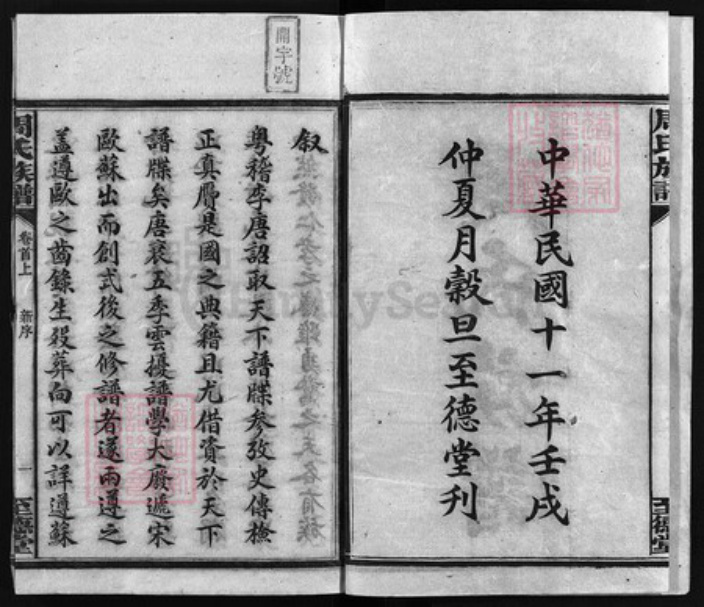 周氏族譜
中華民國十一年壬戌
仲夏月穀旦至德堂刊
至德堂
開字號
叙
粤稽李唐詔取天下譜牒参攷史傳檢
正真贋是國之典籍且尤借資於天下
譜牒矣唐衰五季雲擾譜學大廢遞宋
歐蘇出而創式後之修譜者遂兩遵之
蓋遵歐之齒錄生殁葬向可以詳遵蘇
周氏族譜
卷首上
新序
一
至德堂
FamilySearch